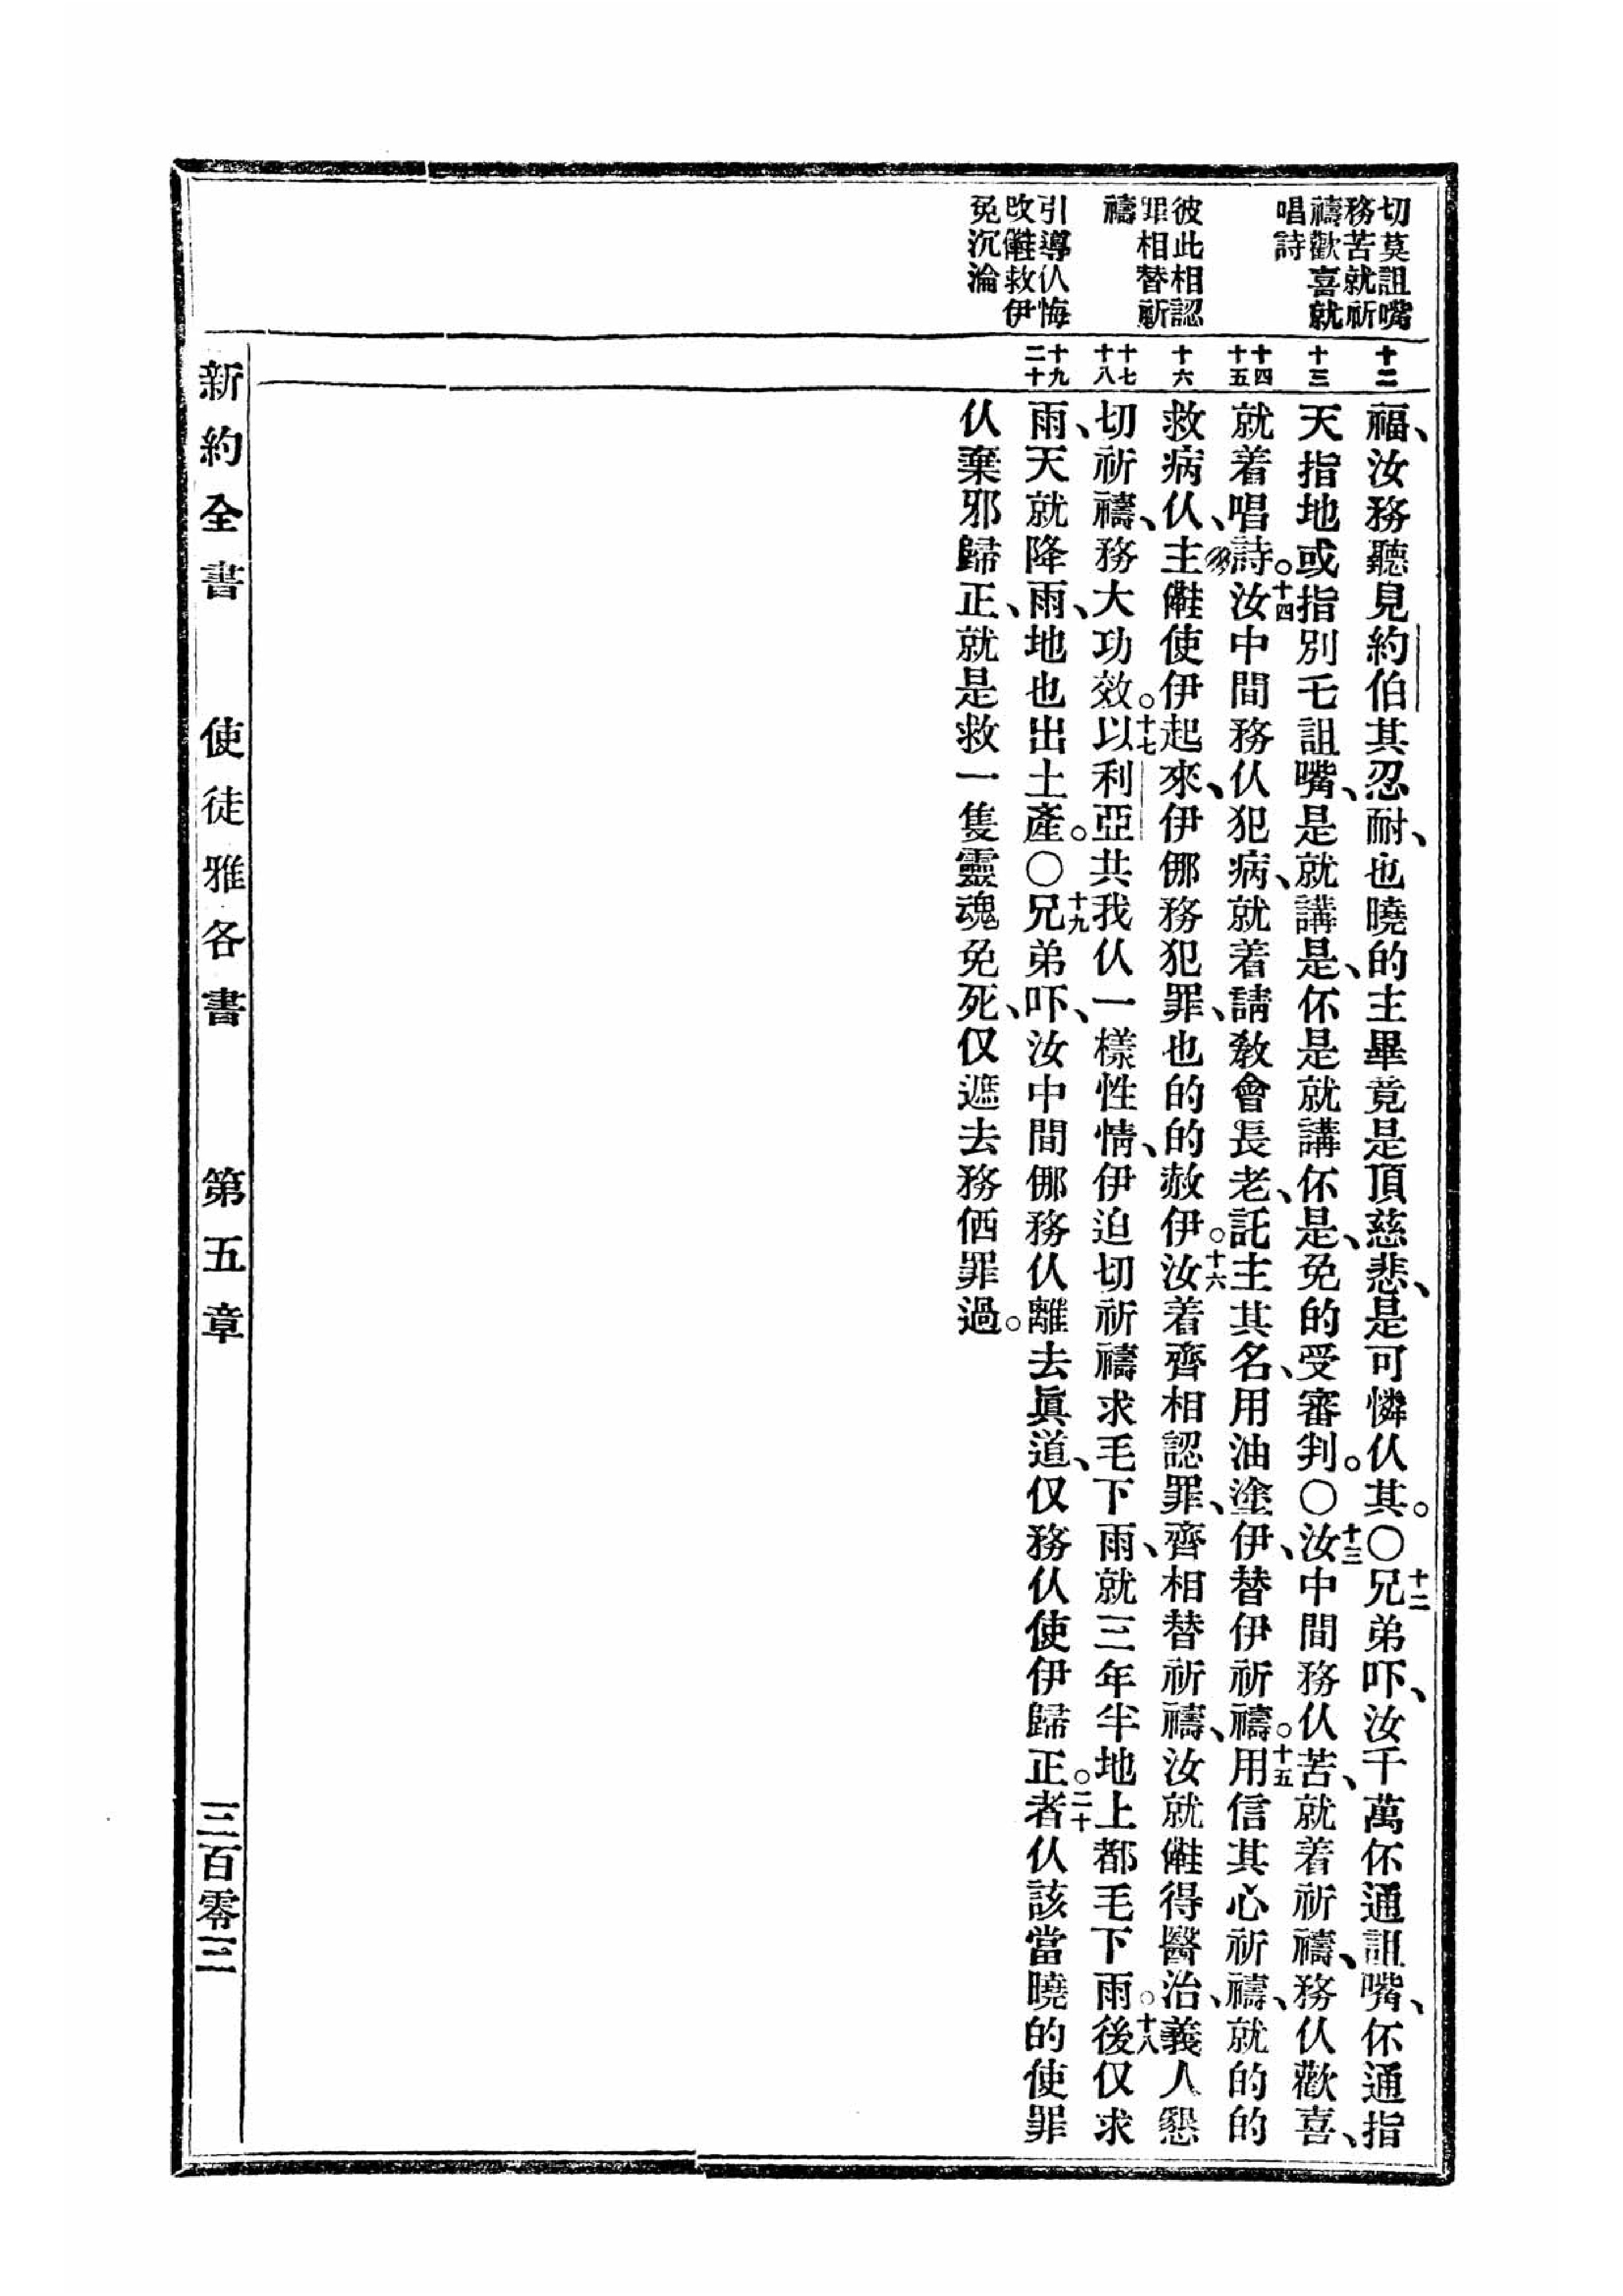 切莫詛嘴
務苦就祈
禱歡喜就
唱詩
彼此相認
罪相替祈
禱
引導仈悔
改㒕救伊
免沉淪
十二
十三
十四
十五
十六
十七
十八
十九
二十
福、汝務聽見約伯其忍耐、也曉的主畢竟是頂慈悲、是可憐仈其。〇十二兄弟吓、汝千萬伓通詛嘴、伓通指
天指地或指別乇詛嘴、是就講是、伓是就講伓是、免的受審判。〇十三汝中間務仈苦、就着祈禱、務仈歡喜、
就着唱詩。十四汝中間務仈犯病、就着請敎會長老、託主其名、用油塗伊、替伊祈禱。十五用信其心祈禱、就的的
救病仈、主㒕使伊起來、伊㑚務犯罪、也的的赦伊。十六汝着齊相認罪、齊相替祈禱、汝就㒕得醫治、義人懇
切祈禱、務大功效。十七以利亞共我仈一樣性情、伊迫切祈禱求毛下雨、就三年半地上都毛下雨。十八後仅求
雨、天就降雨、地也出土產。〇十九兄弟吓、汝中間㑚務仈離去眞道、仅務仈使伊歸正。二十者仈該當曉的使罪
仈棄邪歸正、就是救一隻靈魂免死、仅遮去務㐽罪過。
新約全書 使徒雅各書 第五章 三百零三